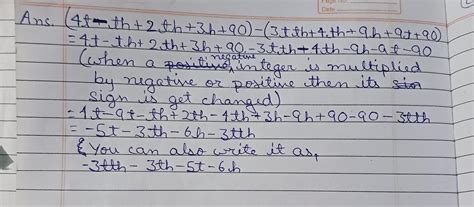 Page No.
Date
Ans. (4t-th+2th+3h+90)-(3tth+4th+9h+9t+90)
=4t-th+2th+3h+90-3tth-4th-9h-9t-90
(when a negative integer is multiplied
by negative or positive then its
sign is get changed)
=4t-9t-th+2th-4th+3h-9h+90-90-3tth
=-5t-3th-6h-3tth
{You can also write it as,
-3tth-3th-5t-6h